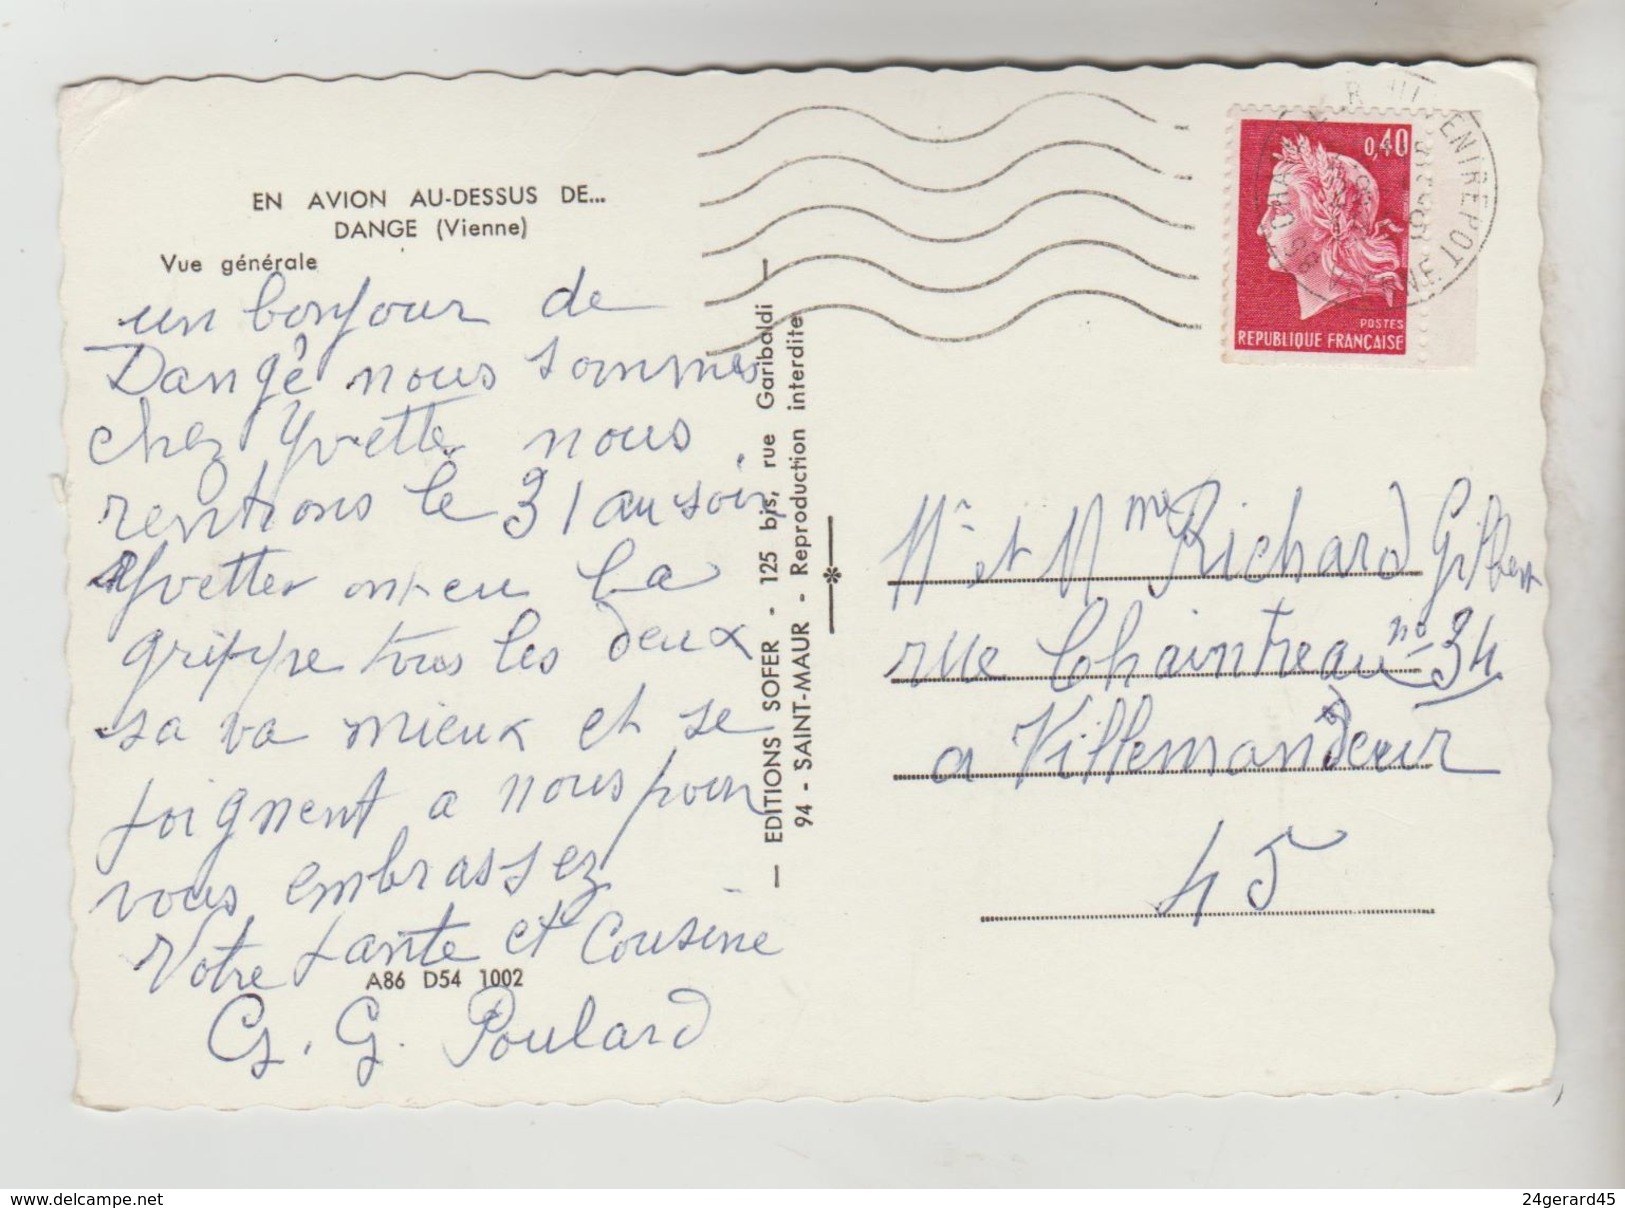 EN AVION AU-DESSUS DE...
DANGE (Vienne)
Vue générale
un bonjour de
Dangé nous sommes
chez Yvette nous
rentrons le 31 au soir
Yvette ont eu la
grippe tous les deux
sa va mieux et se
joignent a nous pour
vous embrassez
Votre tante et Cousine
A86 D54 1002
G. Poulard
— EDITIONS SOFER - 125 bis, rue Garibaldi —
94 - SAINT-MAUR - Reproduction interdite
0,40
POSTES
REPUBLIQUE FRANÇAISE
ENTREPOT
Mr et Mme Richard Gilbert
rue Chaintreau no 34
a Villemandeur
45
www.delcampe.net
24gerard45